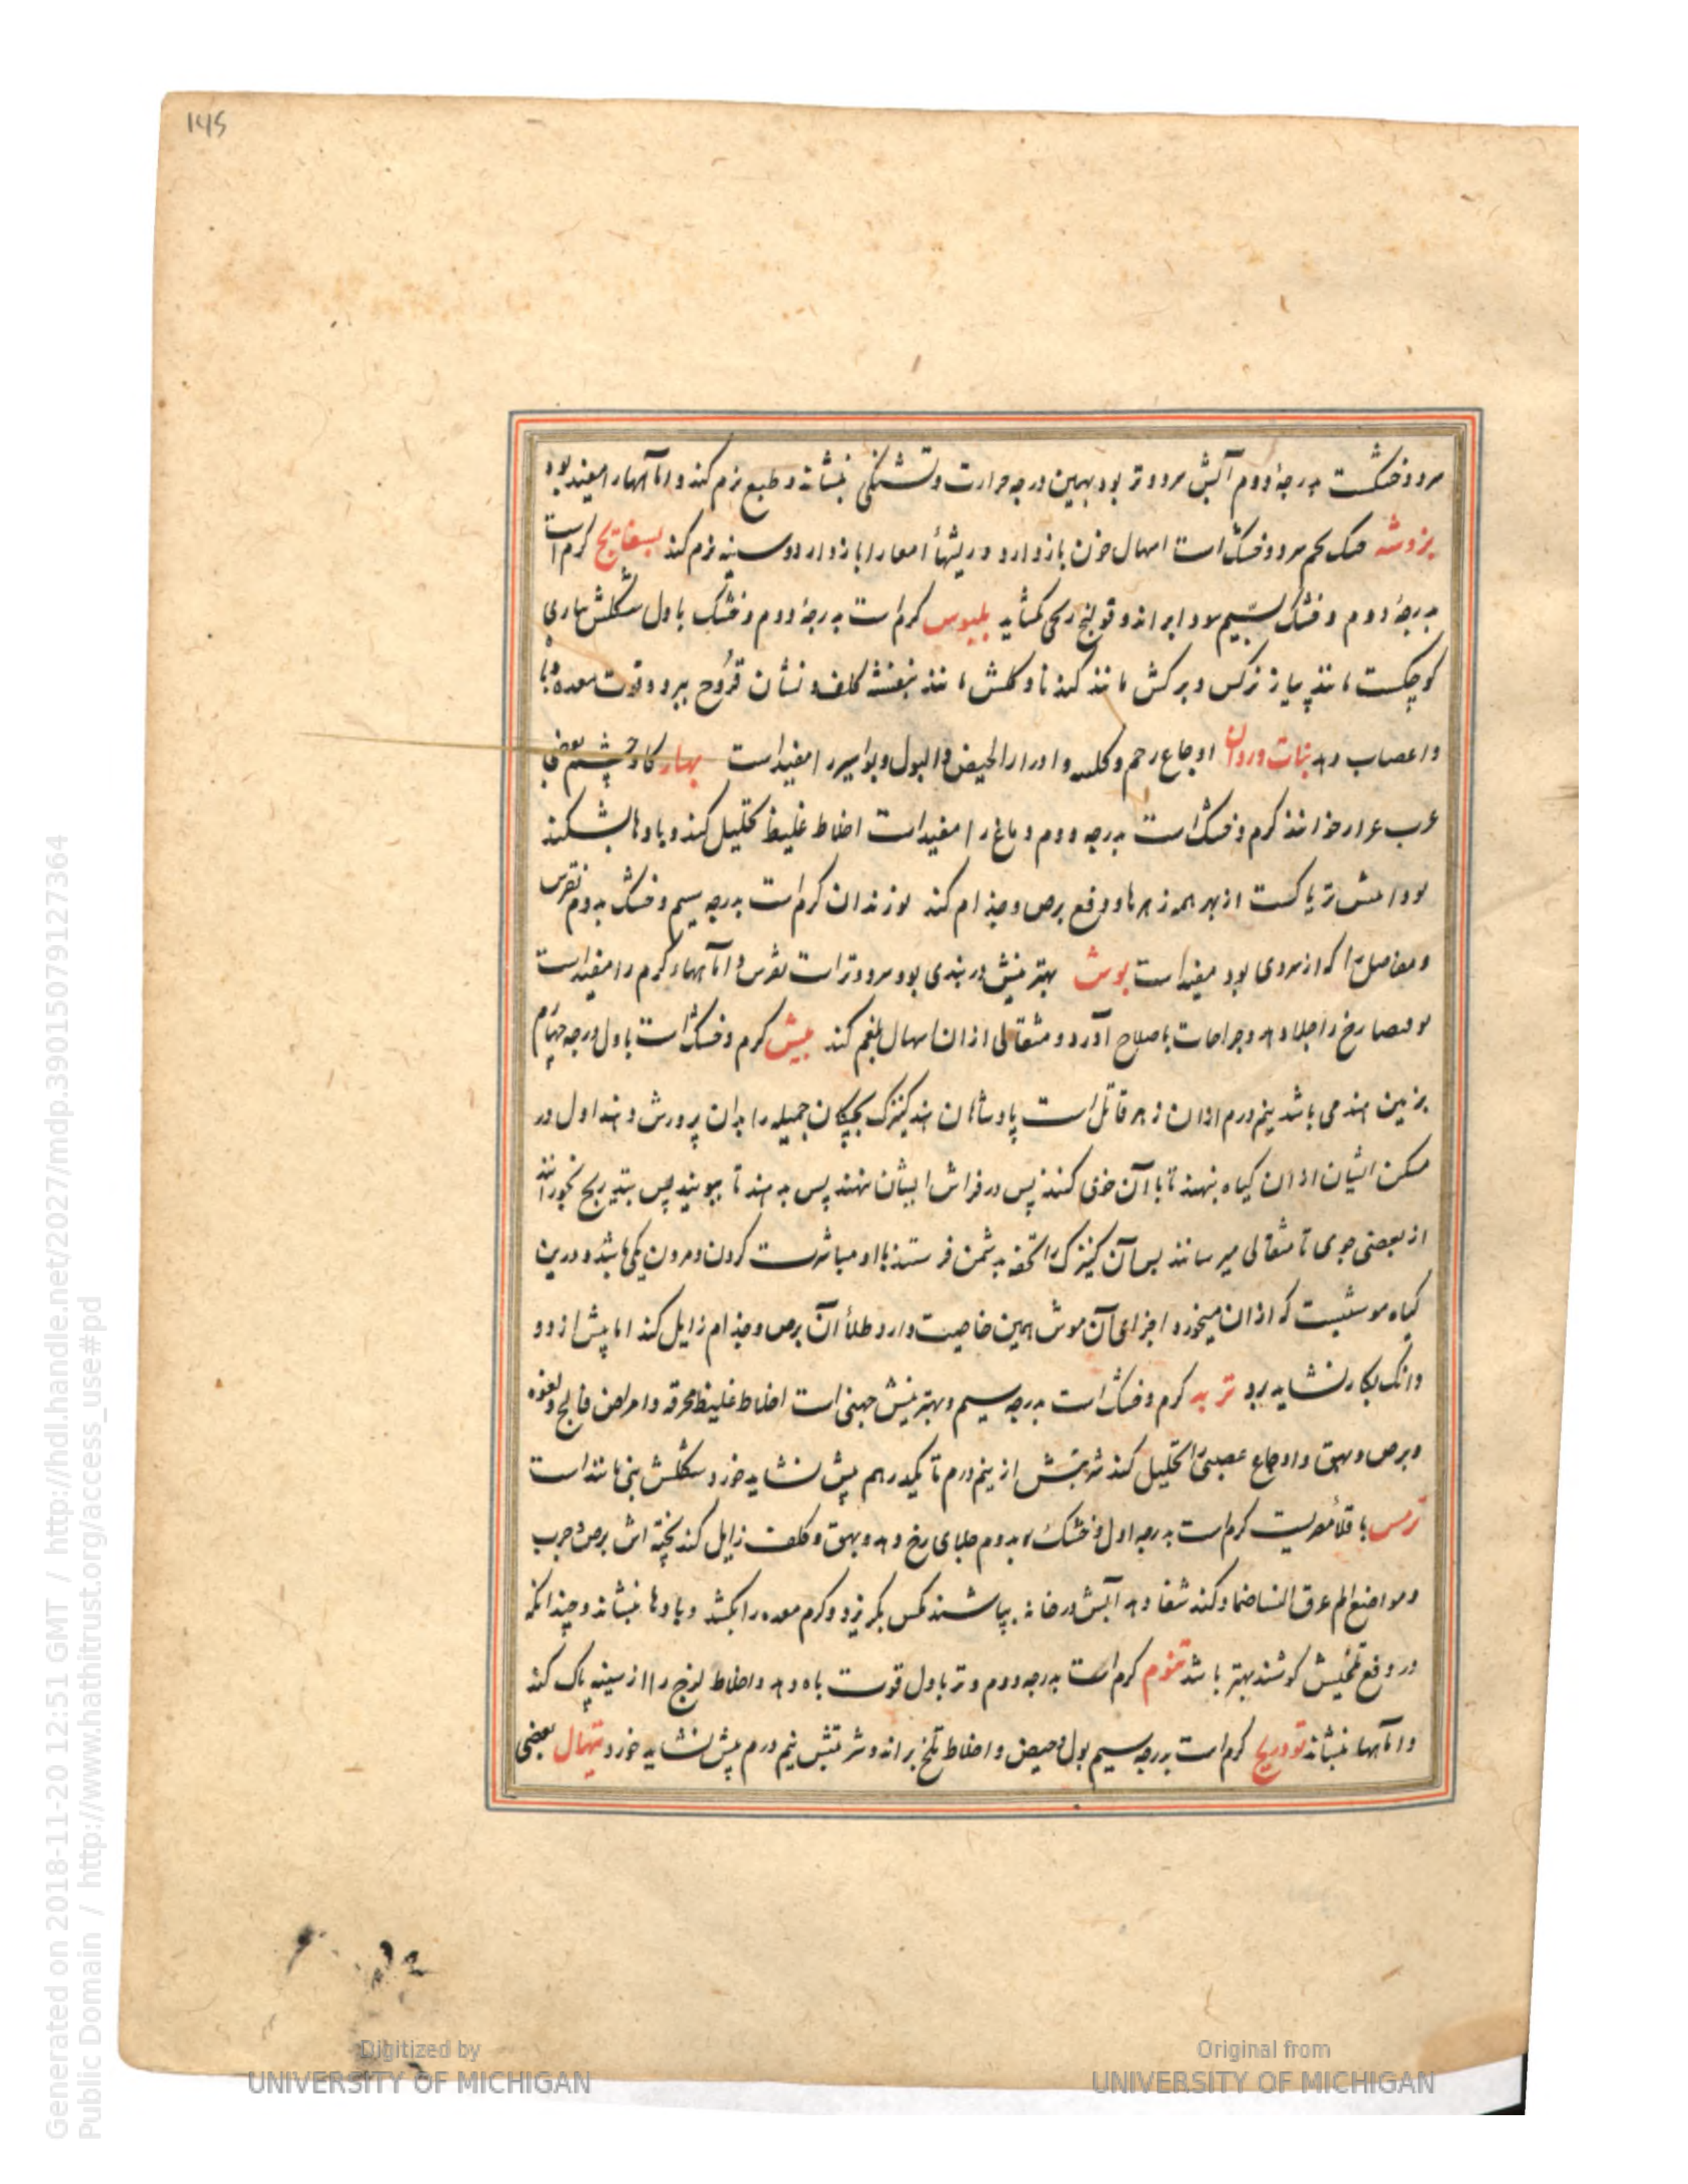 145
سردوخشکست بدرجهٔ دوم آبش سرد و تر بود بهمین درجه حرارت و تشنگی بنشاند و طبع نرم کند و اماآسها را مفید بود
بزوشه خنک تخم سرد و خشک است اسهال خون بازدارد و ریشهأ امعا را بازدارد و سینه نرم کند بسفایج کرم است
بدرجهٔ دوم و خشک بسیم سودا براند و قولنج ریحی بکشاید بلبوس کرم است بدرجهٔ دوم و خشک باول شکلش
کوچکست مانند پیاز نرکس و برکش مانند کندنا و کلش مانند بنفشه کلف و نشان قروح ببرد و قوت معده
و اعصاب دهد بنات وردان اوجاع رحم و کلیه و ادرار الحیض و البول و بواسیر را مفید است بهار کاوچشم بعضی
عرب عرار خوانند کرم و خشک است بدرجه دوم دماغ را مفید است اخلاط غلیظ تحلیل کند و بادها بشکند
تریاکست از بهر همه زهرها و دفع برص و جذام کند لوزندان کرم است بدرجه سیم و خشک بدوم نقرس
و مفاصل را که از سردی بود مفید است بوش بهترینش دربندی بود سرد و تر است نقرس و اماآسهاء کرم را مفید است
رخ را جلا دهد و جراحات باصلاح آورد و مثقالی از ان اسهال بلغم کند بیش کرم و خشک است باول درجه چهارم
بزمین هند می باشد نیم درم از ان زهر قاتل است پادشاهان هند کنیزک بچکان جمیله را بدان پرورش دهند اول در
مسکن ایشان از ان کیاه بنهند تا با آن خوی کنند پس در فراش ایشان نهند پس بدهند تا ببویند پس بتدریج بخورانند
از بعضی جوی تا مثقالی میرسانند پس آن کنیزک را تحفه بدشمن فرستند با او مباشرت کردن و مردن یکی باشد و درین
کیاه موشیست که از ان میخورد اجزای آن موش همین خاصیت دارد طلأ آن برص و جذام زایل کند اما بیش از دو
دانک بکار نشاید برد تربد کرم و خشک است بدرجه سیم و بهترینش چینی است اخلاط غلیظ محرقه و امراض فالج و لقوه
و برص و بهق و اوجاع عصبی را تحلیل کند شربتش از نیم درم تا یکدرهم بیش نشاید خورد شکلش بنی مانند است
ترمس باقلأ مصریست کرم است بدرجه اول و خشک بدوم جلای رخ دهد و بهق و کلف زایل کند پخته اش برص و جرب
و مواضع الم عرق النسا ضماد کنند شفا دهد آبش در خانه بپاشند مکس بکریزد و کرم معده را بکشد و بادها بنشاند و چندانکه
در دفع تلخیش کوشند بهتر باشد تنوم کرم است بدرجه دوم و تر باول قوت باه دهد و اخلاط لزج را از سینه پاک کند
و اماآسها بنشاند تودریج کرم است بدرجه سیم بول و حیض و اخلاط تلخ براند و شربتش نیم درم بیش نشاید خورد تنهال بعضی
Generated on 2018-11-20 12:51 GMT / http://hdl.handle.net/2027/mdp.39015079127364
Public Domain / http://www.hathitrust.org/access_use#pd
Digitized by
UNIVERSITY OF MICHIGAN
Original from
UNIVERSITY OF MICHIGAN